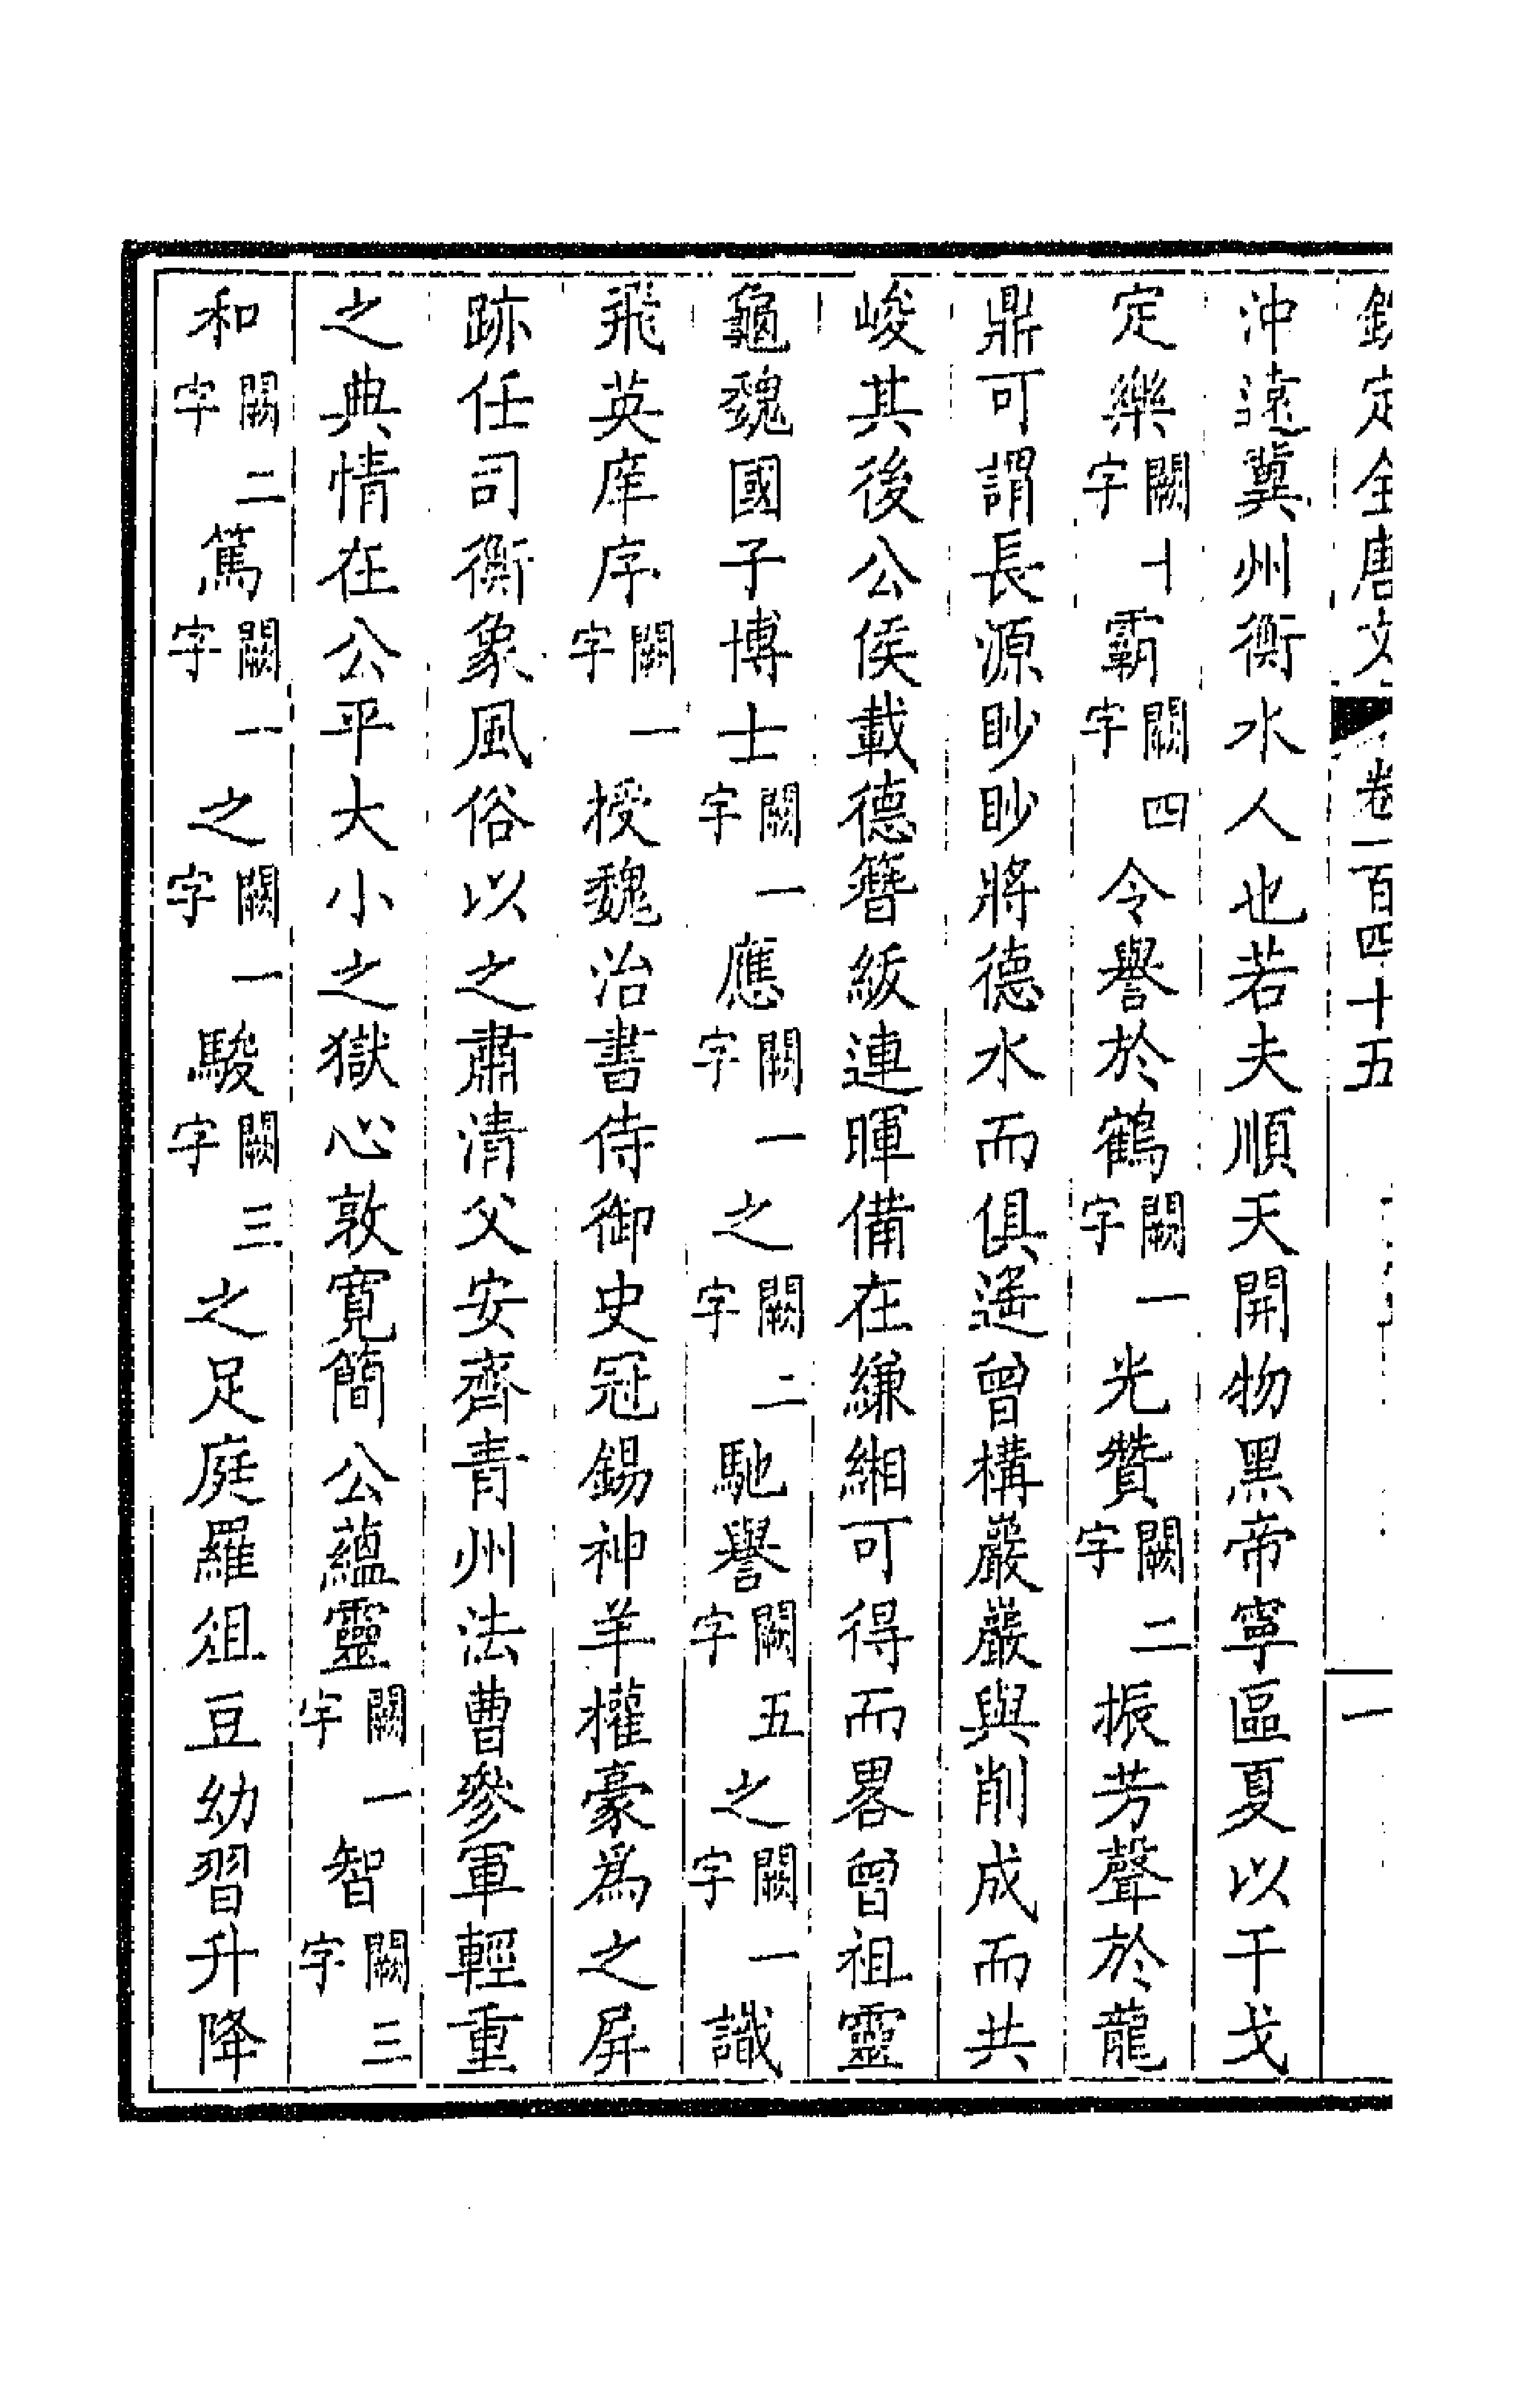 欽定全唐文 卷一百四十五 一
沖遠冀州衡水人也若夫順天開物黑帝寧區夏以干戈
定樂闕 字霸闕四字令譽於鶴闕一字光贊闕二字振芳聲於龍
鼎可謂長源眇眇將德水而俱遙曾構巖巖與削成而共
峻其後公侯載德簪紱連暉備在縑緗可得而畧曾祖靈
龜魏國子博士闕一字應闕一字之闕二字馳譽闕五字之闕一字識
飛英庠序闕一字授魏治書侍御史冠錫神羊權豪爲之屏
跡任司衡象風俗以之肅清父安齊青州法曹參軍輕重
之典情在公平大小之獄心敦寬簡公蘊靈闕一字智闕三字
和闕二字篤闕一字之闕一字駿闕三字之足庭羅俎豆幼習升降